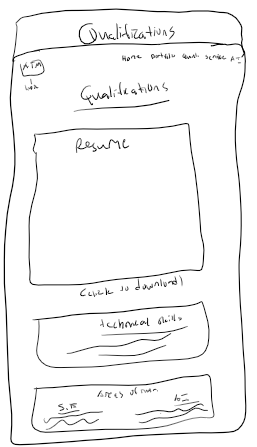 Qualifications
Home Portfolio Quali. Service
Qualifications
Resume
(click to download)
Technical Skills
Areas of